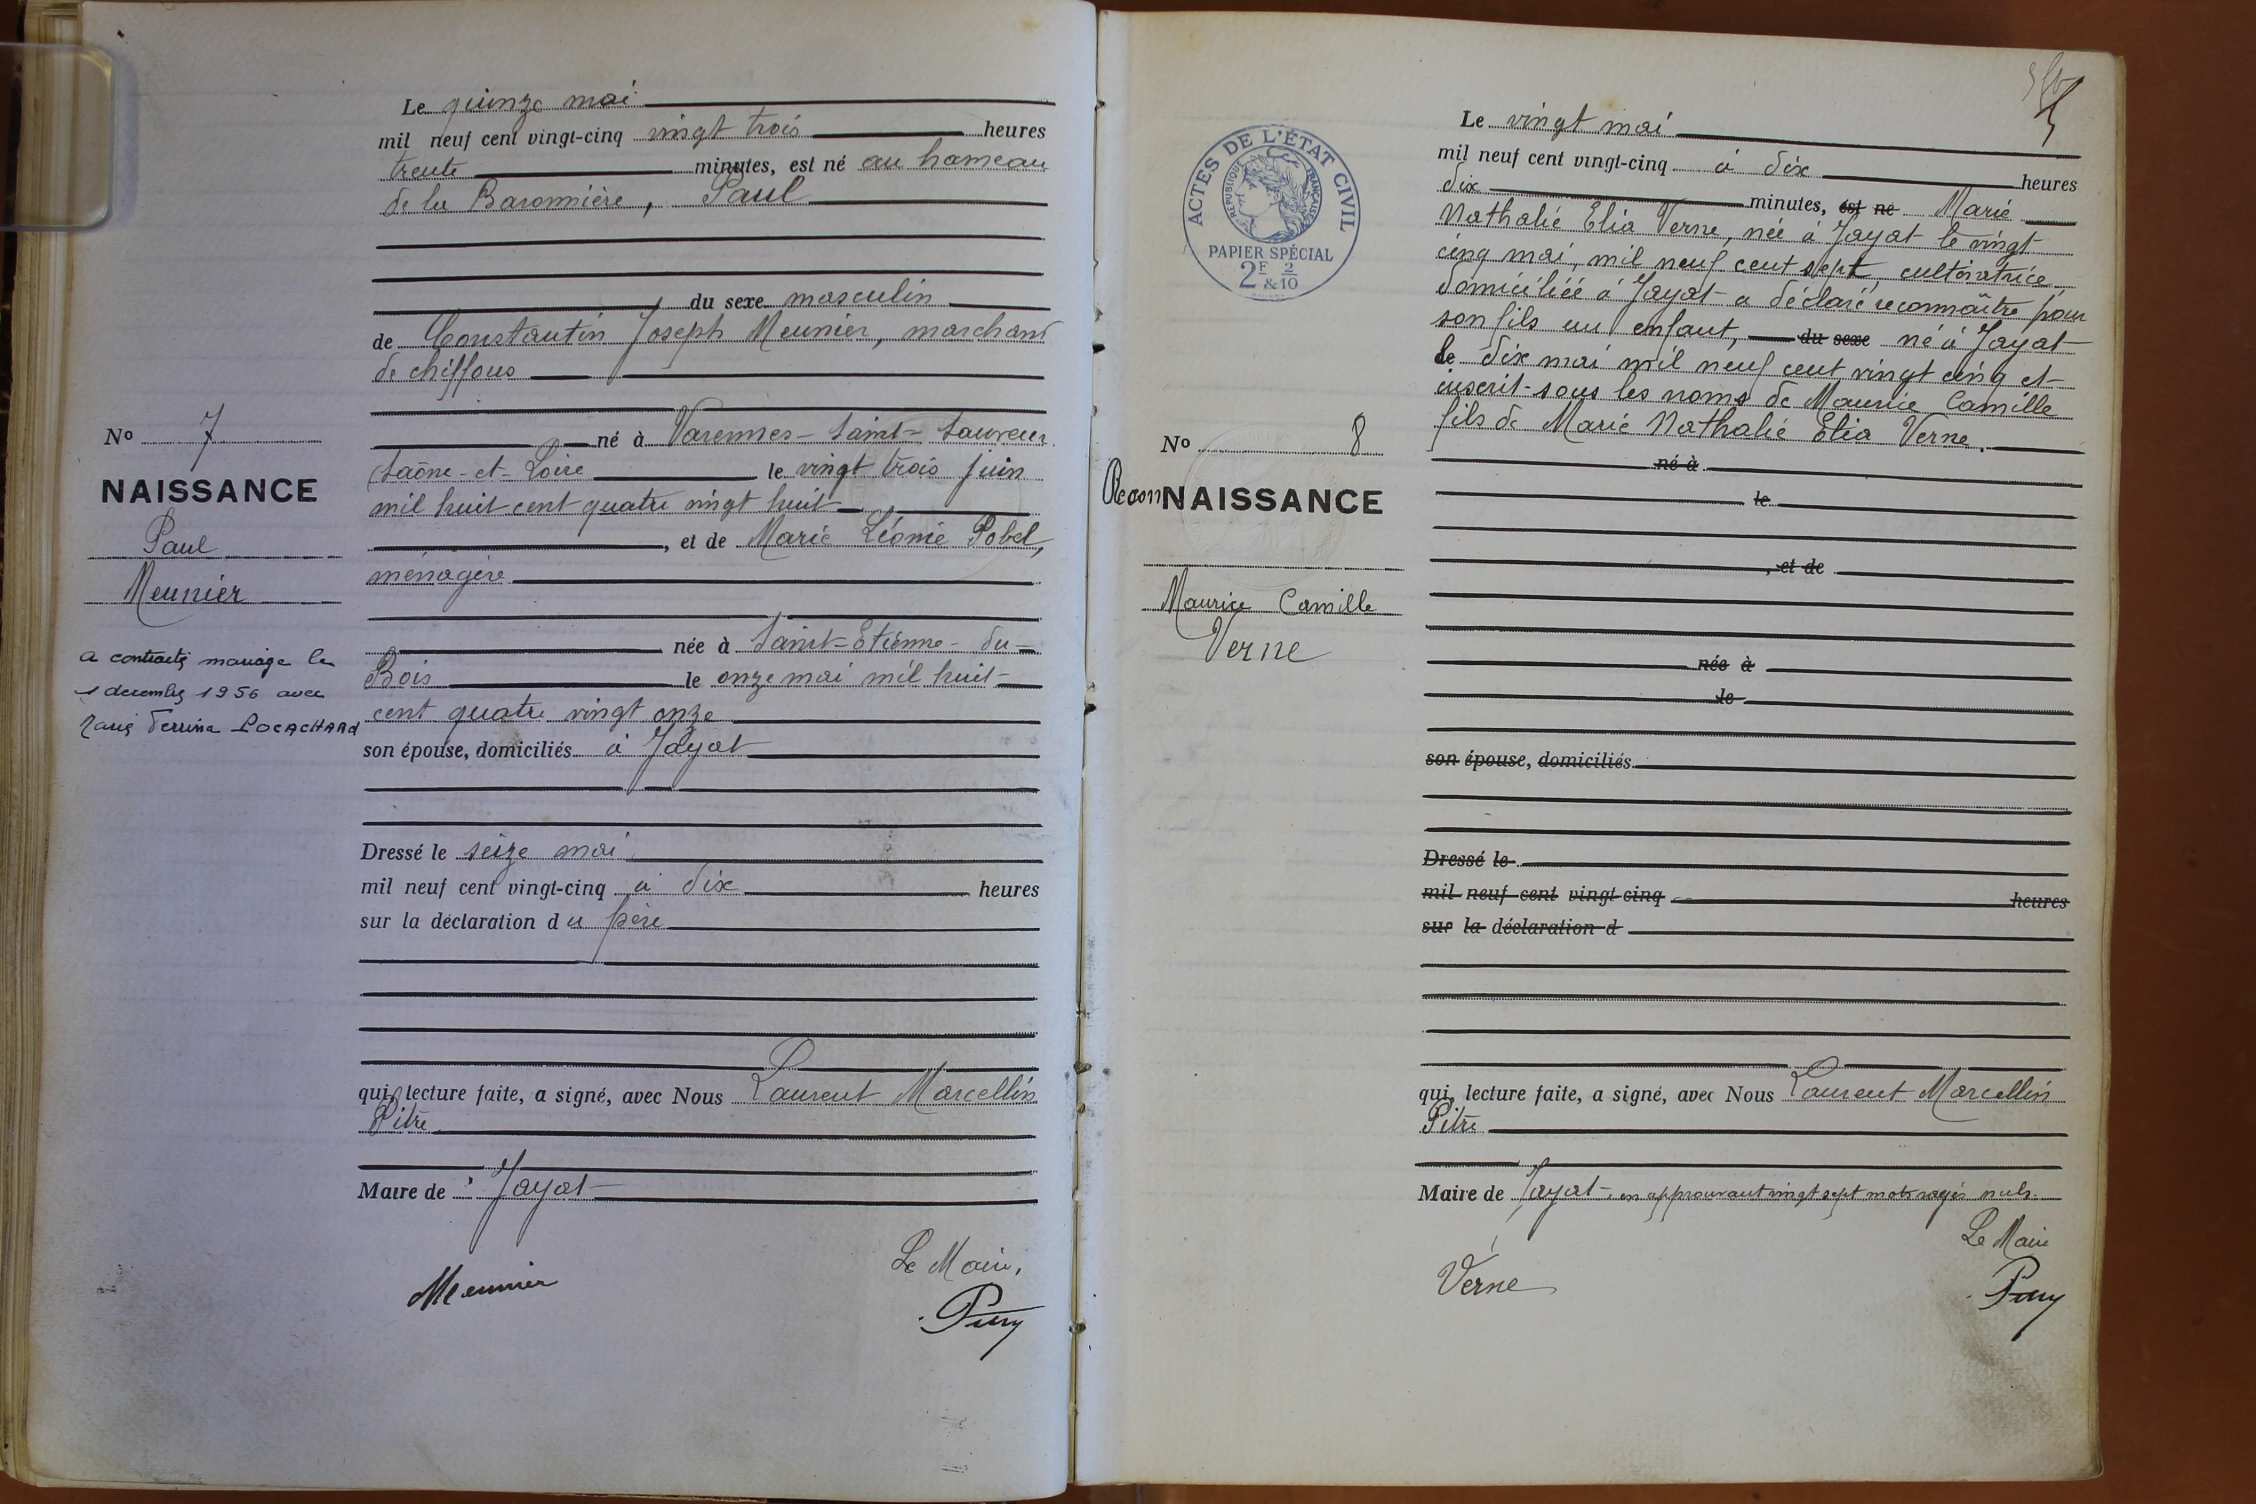 Le quinze mai
mil neuf cent vingt-cinq vingt trois heures
trente minutes, est né au hameau
de la Baronnière, Paul
du sexe masculin
de Constantin Joseph Meunier, marchand
de chiffons
né à Varennes-Saint-Sauveur
Saône-et-Loire le vingt trois juin
mil huit cent quatre vingt huit
, et de Marie Léonie Pobel,
ménagère
née à Saint-Etienne-du-
Bois le onze mai mil huit-
cent quatre vingt onze
son épouse, domiciliés à Jayat
Dressé le seize mai
mil neuf cent vingt-cinq à dix heures
sur la déclaration du père
qui, lecture faite, a signé, avec Nous Laurent Marcellin
Pitre
Maire de Jayat
Meunier
Le Maire,
No 7
NAISSANCE
Paul
Meunier
a contracté mariage le
1 décembre 1956 avec
LOCACHARD
ACTES DE L'ÉTAT CIVIL
RÉPUBLIQUE FRANÇAISE
PAPIER SPÉCIAL
2F & 2/10
No 8
ReconNAISSANCE
Maurice Camille
Verne
Le vingt mai
mil neuf cent vingt-cinq à dix heures
dix minutes, est né Marie
Nathalie Elia Verne, née à Jayat le vingt
cinq mai, mil neuf cent sept, cultivatrice
domiciliée à Jayat a déclaré reconnaître pour
son fils un enfant, du sexe né à Jayat
le dix mai mil neuf cent vingt cinq et
inscrit sous les noms de Maurice Camille
fils de Marie Nathalie Elia Verne.
né à
le
, et de
née à
le
son épouse, domiciliés
Dressé le
mil neuf cent vingt-cinq heures
sur la déclaration d
qui, lecture faite, a signé, avec Nous Laurent Marcellin
Pitre
Maire de Jayat, en approuvant vingt sept mots rayés nuls.
Verne
Le Maire